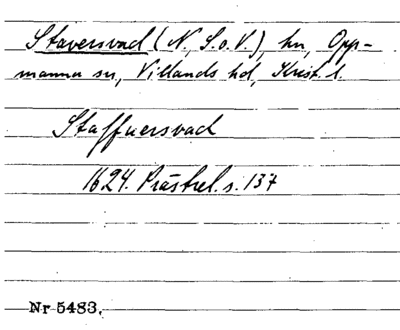 Staversvad (N., S. o. V.), hn, Opp-
manna sn, Villands hd, Krist. l.
Staffuersvad
1624. Prästrel. s. 137
Nr 5483.